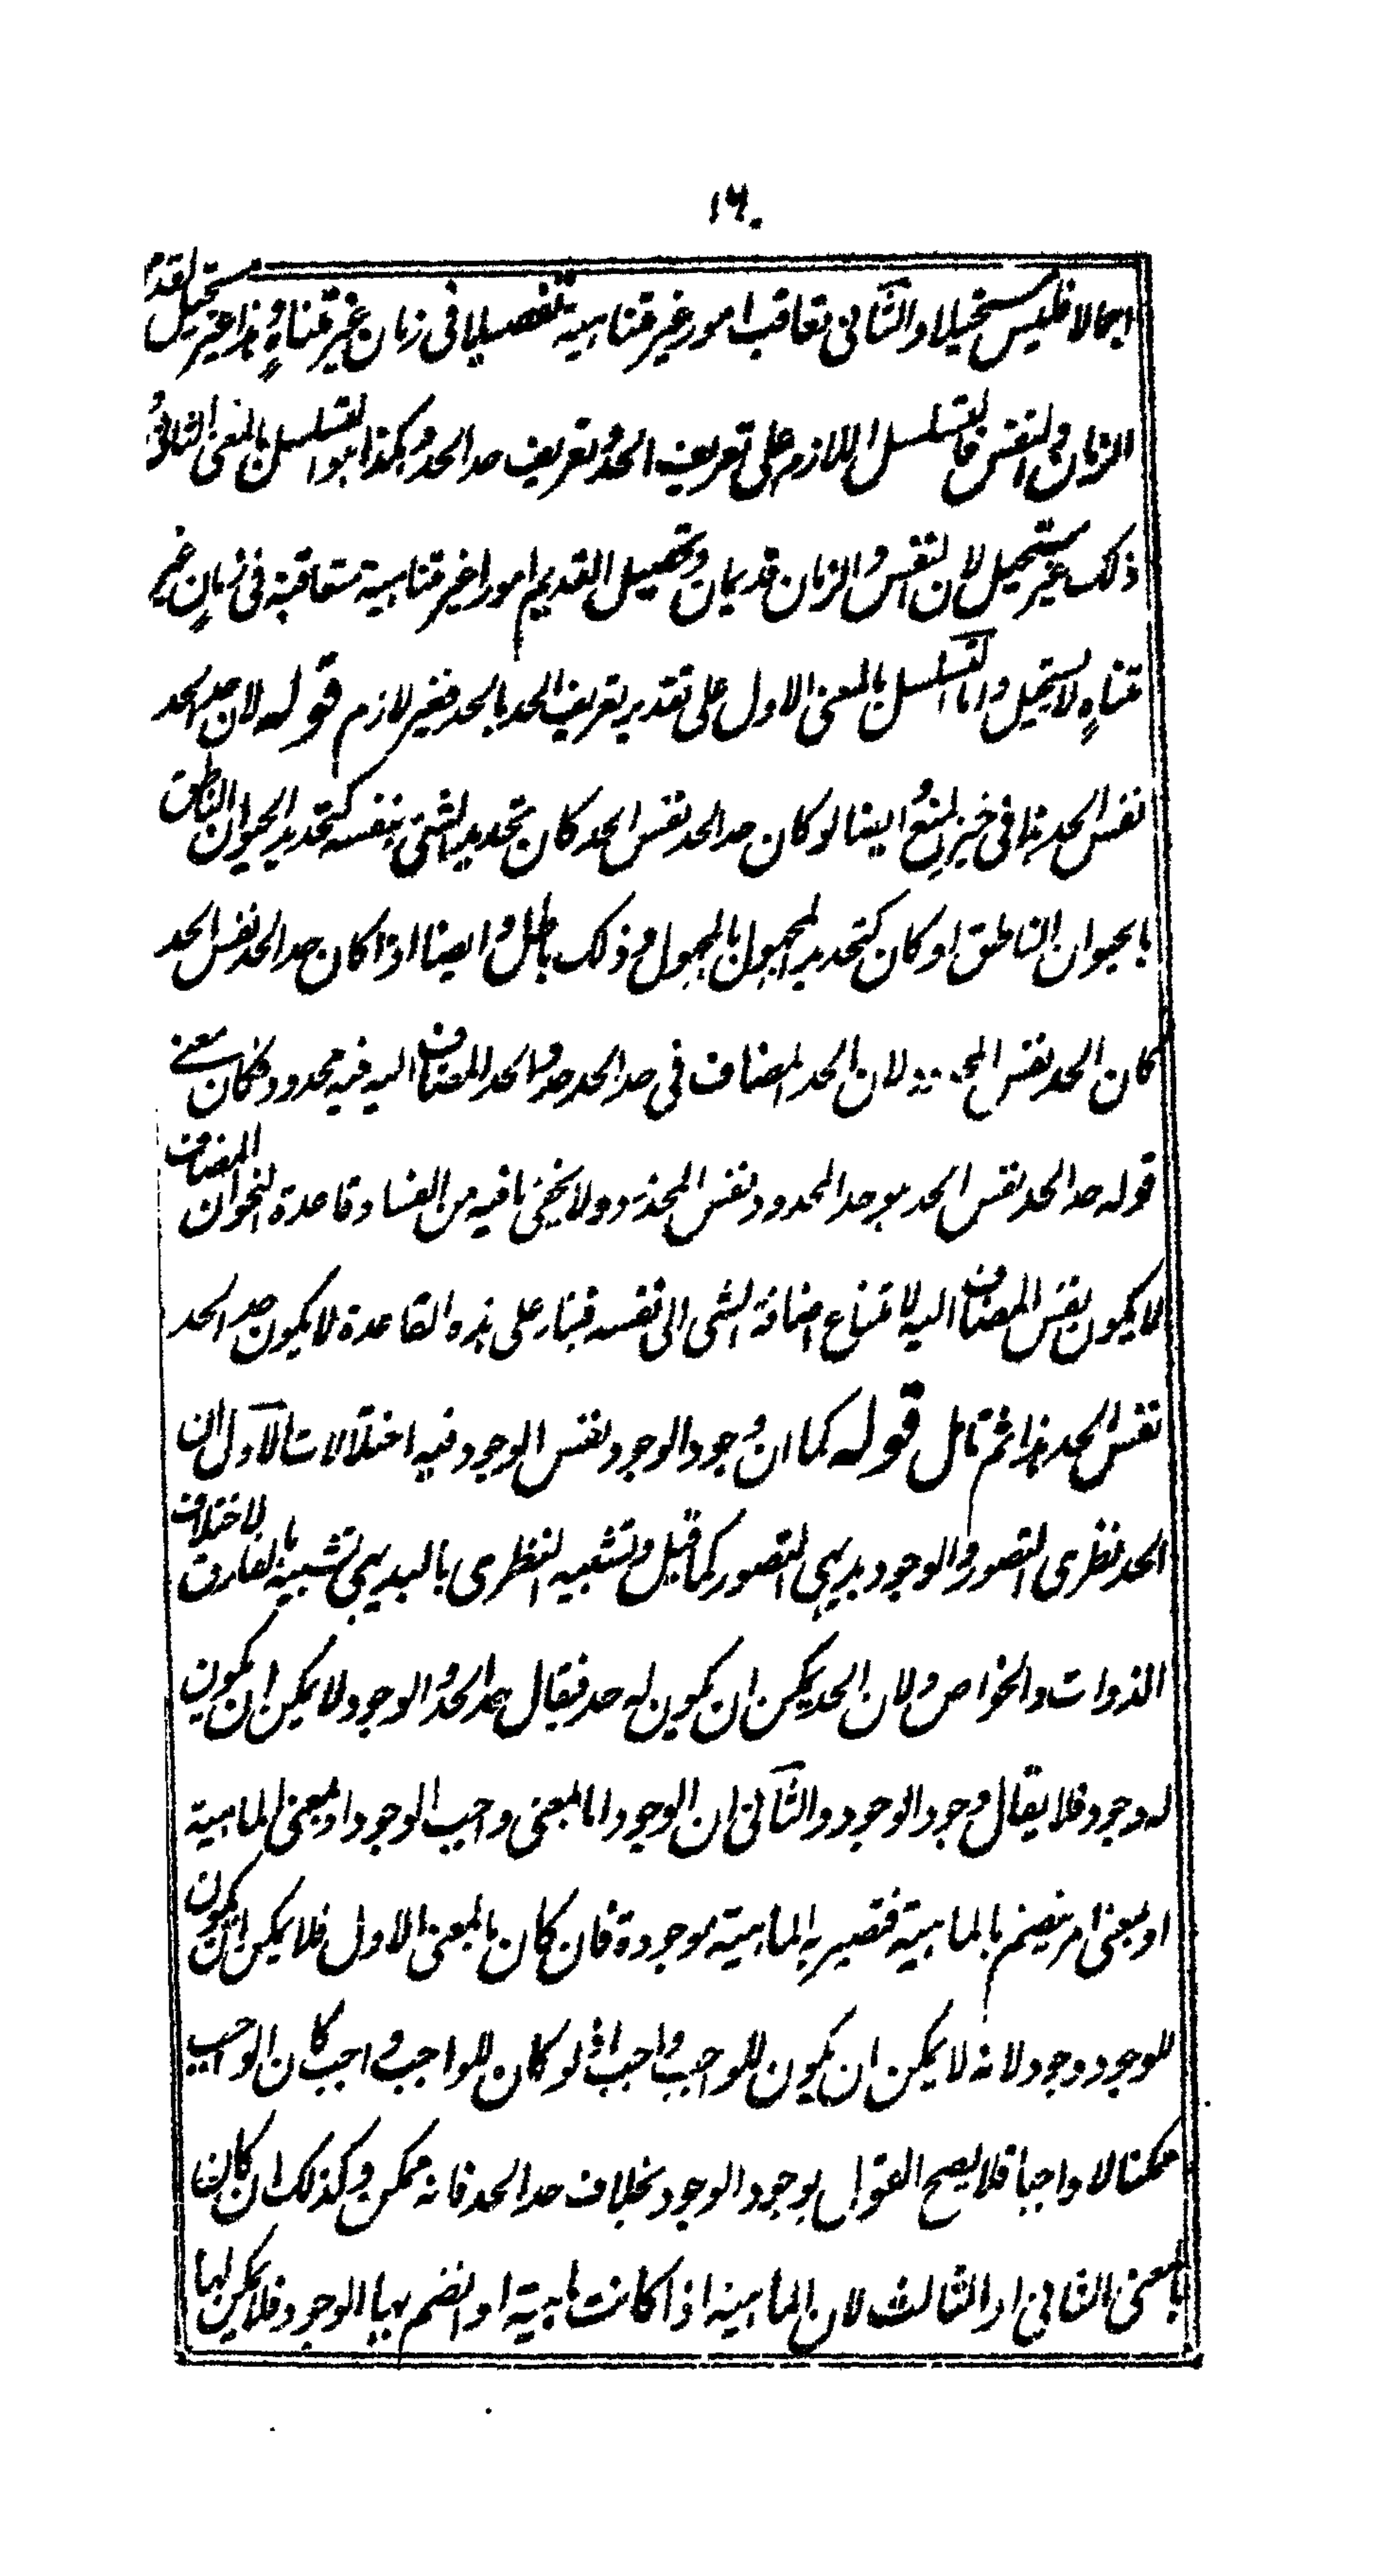 ١٦٠
اجمالا فليس مستحيلا والثانى تعاقب امور غير متناهية تفصيلا فى زمان غير متناهٍ وهذا غير مستحيل لقدم
الزمان والنفس فالتسلسل اللازم على تعريف الحد وتعريف حد الحد وهكذا هو التسلسل بالمعنى الثانى و
ذلك غير مستحيل لان النفس والزمان قديمان وتحصيل القديم امورا غير متناهية متعاقبة فى زمانٍ غير
متناهٍ لا يستحيل واما التسلسل بالمعنى الاول على تقدير تعريف الحد بالحد فغير لازم قوله لان حد الحد
نفس الحد هذا فى حيز المنع وايضا لو كان حد الحد نفس الحد كان تحديد الشئ بنفسه كتحديد الحيوان الناطق
بالحيوان الناطق او كان كتحديد المجهول بالمجهول وذلك باطل وايضا اذا كان حد الحد نفس الحد
كان الحد نفس المحدود لان الحد المضاف فى حد الحد حد والحد المضاف اليه فيه محدود فكان معنے
قوله حد الحد نفس الحد هو حد المحدود نفس المحدود ولا يخفى ما فيه من الفساد وقاعدة النحو ان المضاف
لا يكون نفس المضاف اليه لامتناع اضافة الشى الى نفسه فبناء على هذه القاعدة لا يكون حد الحد
نفس الحد هذا ثم تامل قوله كما ان وجود الوجود نفس الوجود فيه اختلالات الاول ان
الحد نظرى التصور والوجود بديهى التصور كما قيل وتشبيه النظرى بالبديهى تشبيه بالفارق لاختلاف
الذوات والخواص ولان الحد يمكن ان يكون له حد فيقال حد الحد والوجود لا يمكن ان يكون
له وجود فلا يقال وجود الوجود والثانى ان الوجود اما بمعنى واجب الوجود او بمعنى الماهية
او بمعنى امر ينضم بالماهية فتصير به الماهية موجودة فان كان بالمعنى الاول فلا يمكن ان يكون
للوجود وجود لانه لا يمكن ان يكون للواجب واجب اذ لو كان للواجب واجب كان الواجب
ممكنا لا واجبا فلا يصح القول بوجود الوجود بخلاف حد الحد فانه ممكن وكذلك ان كان
بالمعنى الثانى او الثالث لان الماهية اذا كانت ماهية او انضم بها الوجود فلا يمكن لها